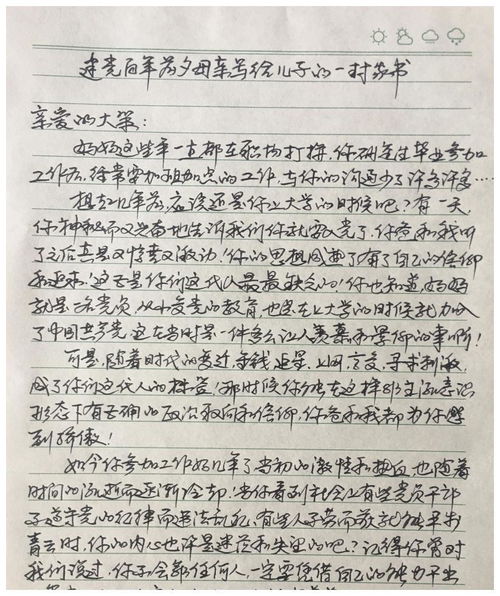 建党百年前夕母亲写给儿子的一封家书
亲爱的大军：
妈妈这些年一直都在职场打拼，你研究生毕业参加
工作后，经常要加班加点的工作，与你的沟通少了许多许多……
想起几年前应该还是你上大学的时候吧？有一天，
你神秘而又兴奋地告诉我们你就要入党了，你爸和我听
了之后真是又惊喜又激动！你的思想成熟了有了自己的信仰
和追求！这正是你们这代人最最缺乏的！你也知道，妈妈
就是一名党员，从小受党的教育，也是在上大学的时候就加入
了中国共产党，这在当时是一件多么让人羡慕和景仰的事啊！
可是，随着时代的变迁，金钱、追星、上网、享受、寻求刺激，
成了你们这代人的标签！那时候你能在这样的主流意识
形态下有正确的政治取向和信仰，你爸和我都为你感
到骄傲！
如今你参加工作好几年了当初的激情和热血也随着
时间的流逝而逐渐冷却，当你看到社会上有些党员干部
不遵守党的纪律而违法乱纪，有些人不劳而获就能平步
青云时，你的内心也许是迷茫和失望的吧？记得你曾对
我们说过，你不会靠任何人，一定要凭借自己的能力干出